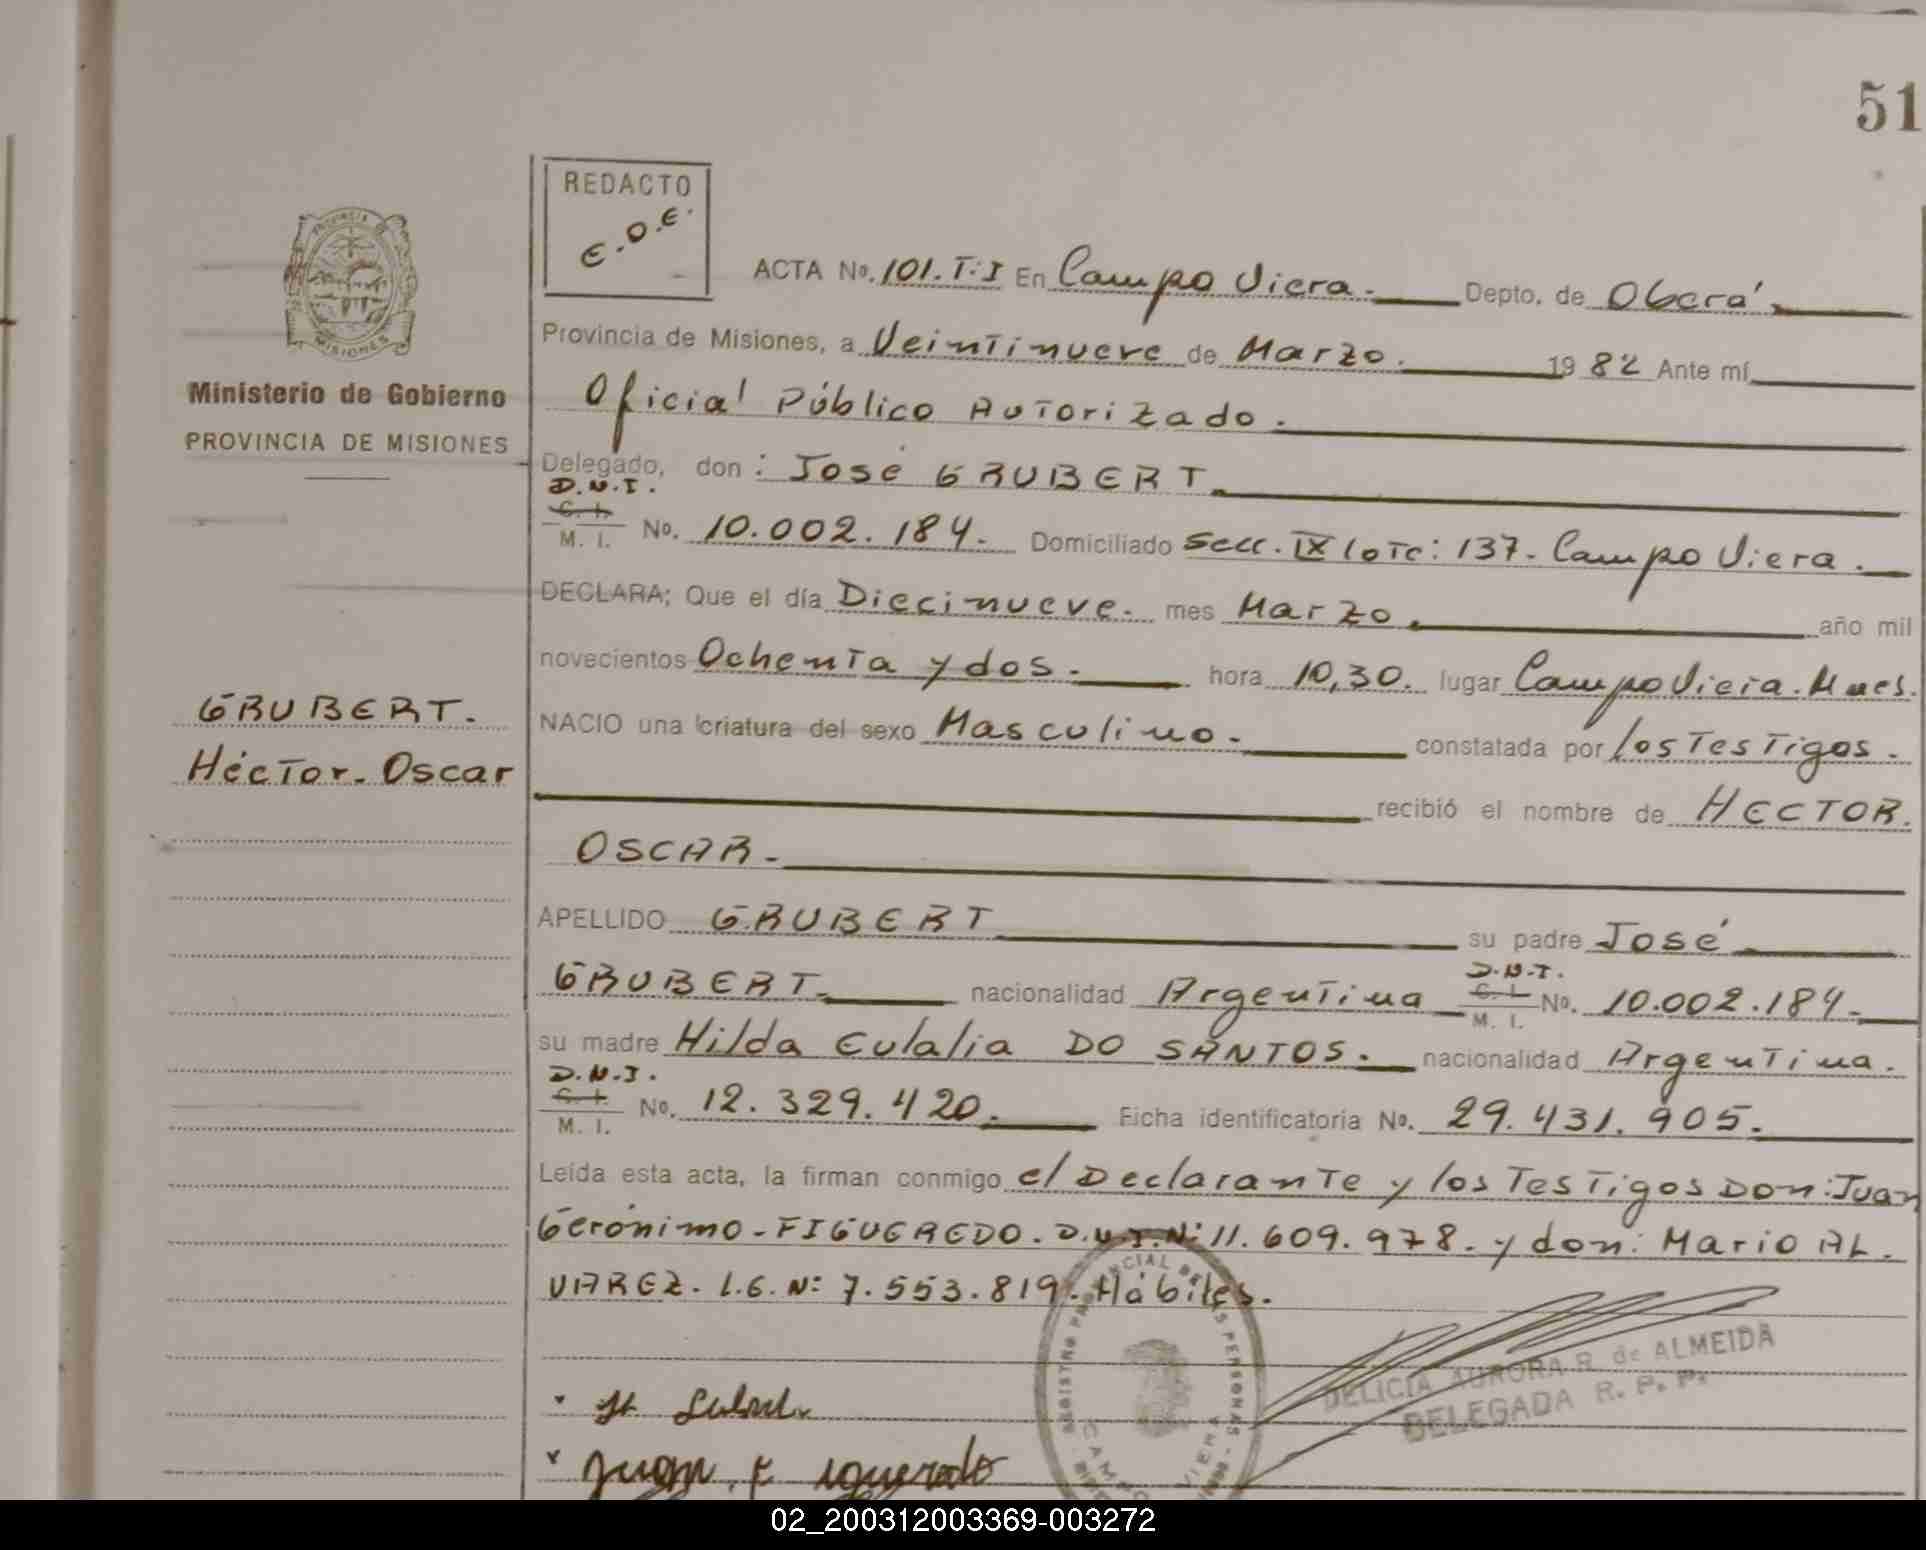 51
REDACTO
E.D.E.
PROVINCIA DE
MISIONES
Ministerio de Gobierno
PROVINCIA DE MISIONES
GRUBERT.
Héctor. Oscar
ACTA No. 101. T:I En Campo Viera. Depto. de Oberá
Provincia de Misiones, a Veintinueve de Marzo. 1982 Ante mí
Oficial Público Autorizado.
Delegado, don: José GRUBERT
D.N.I.
C. I.
M. I. No. 10.002.184. Domiciliado Secc. IX lote: 137. Campo Viera.
DECLARA; Que el día Diecinueve. mes Marzo. año mil
novecientos Ochenta y dos. hora 10,30. lugar Campo Viera. Mnes.
NACIO una criatura del sexo Masculino. constatada por los Testigos.
recibió el nombre de HECTOR.
OSCAR.
APELLIDO GRUBERT su padre José
GRUBERT. nacionalidad Argentina D.N.I. C. I. M. I. No. 10.002.184.
su madre Hilda Eulalia DO SANTOS. nacionalidad Argentina.
D.N.I.
C. I.
M. I. No. 12.329.420. Ficha identificatoria No. 29.431.905.
Leída esta acta, la firman conmigo el Declarante y los Testigos Don: Juan
Gerónimo - FIGUEREDO. D.N.I. Nº 11.609.978. y don: Mario AL.
VAREZ. L.E. Nº: 7.553.819. Hábiles.
REGISTRO PROVINCIAL DE LAS PERSONAS
CAMPO VIERA
DELICIA AURORA R. de ALMEIDA
DELEGADA R. P. P.
Juan F igueredo
02_200312003369-003272